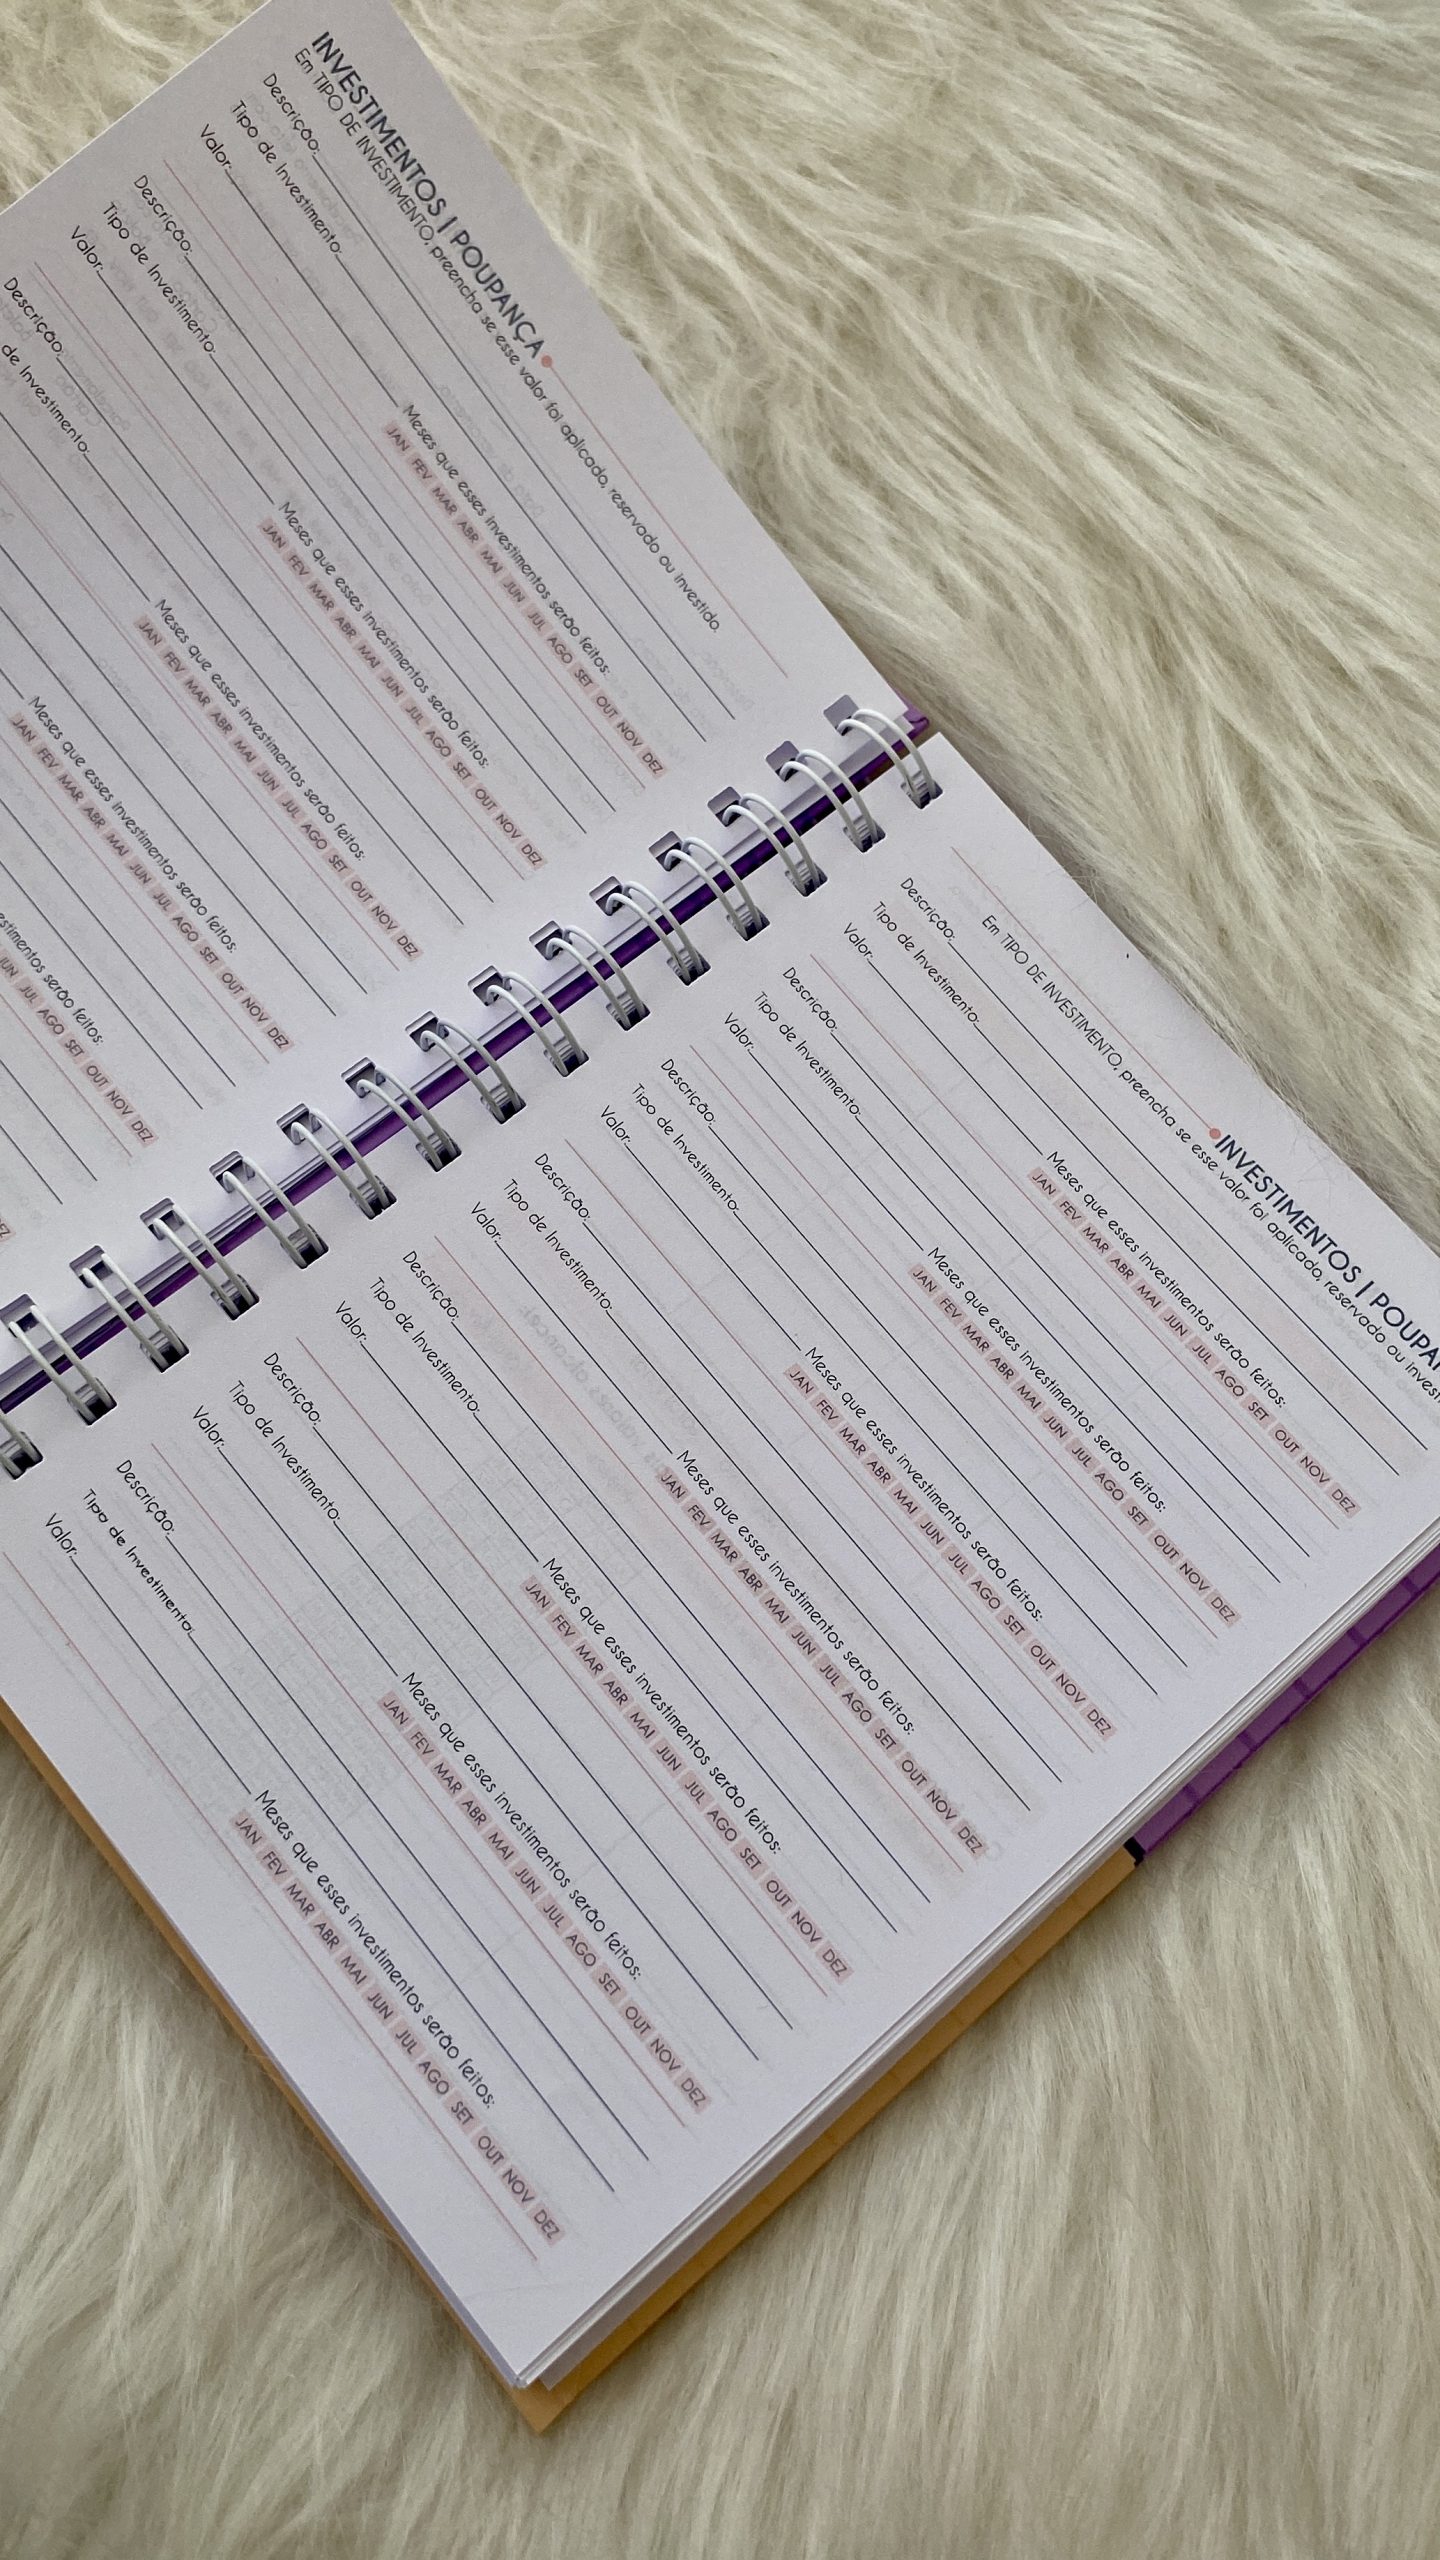 INVESTIMENTOS | POUPANÇA
Em TIPO DE INVESTIMENTO, preencha se esse valor foi aplicado, reservado ou investido.
Descrição:
Tipo de Investimento:
Valor: Meses que esses investimentos serão feitos:
JAN FEV MAR ABR MAI JUN JUL AGO SET OUT NOV DEZ
Descrição:
Tipo de Investimento:
Valor: Meses que esses investimentos serão feitos:
JAN FEV MAR ABR MAI JUN JUL AGO SET OUT NOV DEZ
Descrição:
de Investimento:
Meses que esses investimentos serão feitos:
JAN FEV MAR ABR MAI JUN JUL AGO SET OUT NOV DEZ
Meses que esses investimentos serão feitos:
JAN FEV MAR ABR MAI JUN JUL AGO SET OUT NOV DEZ
serão feitos:
JUN JUL AGO SET OUT NOV DEZ
INVESTIMENTOS |
Em TIPO DE INVESTIMENTO, preencha se esse valor foi aplicado, reservado ou
Descrição:
Tipo de Investimento:
Valor: Meses que esses investimentos serão feitos:
JAN FEV MAR ABR MAI JUN JUL AGO SET OUT NOV DEZ
Descrição:
Tipo de Investimento:
Valor: Meses que esses investimentos serão feitos:
JAN FEV MAR ABR MAI JUN JUL AGO SET OUT NOV DEZ
Descrição:
Tipo de Investimento:
Valor: Meses que esses investimentos serão feitos:
JAN FEV MAR ABR MAI JUN JUL AGO SET OUT NOV DEZ
Descrição:
Tipo de Investimento:
Valor: Meses que esses investimentos serão feitos:
JAN FEV MAR ABR MAI JUN JUL AGO SET OUT NOV DEZ
Descrição:
Tipo de Investimento:
Valor: Meses que esses investimentos serão feitos:
JAN FEV MAR ABR MAI JUN JUL AGO SET OUT NOV DEZ
Descrição:
Tipo de Investimento:
Valor: Meses que esses investimentos serão feitos:
JAN FEV MAR ABR MAI JUN JUL AGO SET OUT NOV DEZ
Descrição:
Tipo de Investimento:
Valor: Meses que esses investimentos serão feitos:
JAN FEV MAR ABR MAI JUN JUL AGO SET OUT NOV DEZ